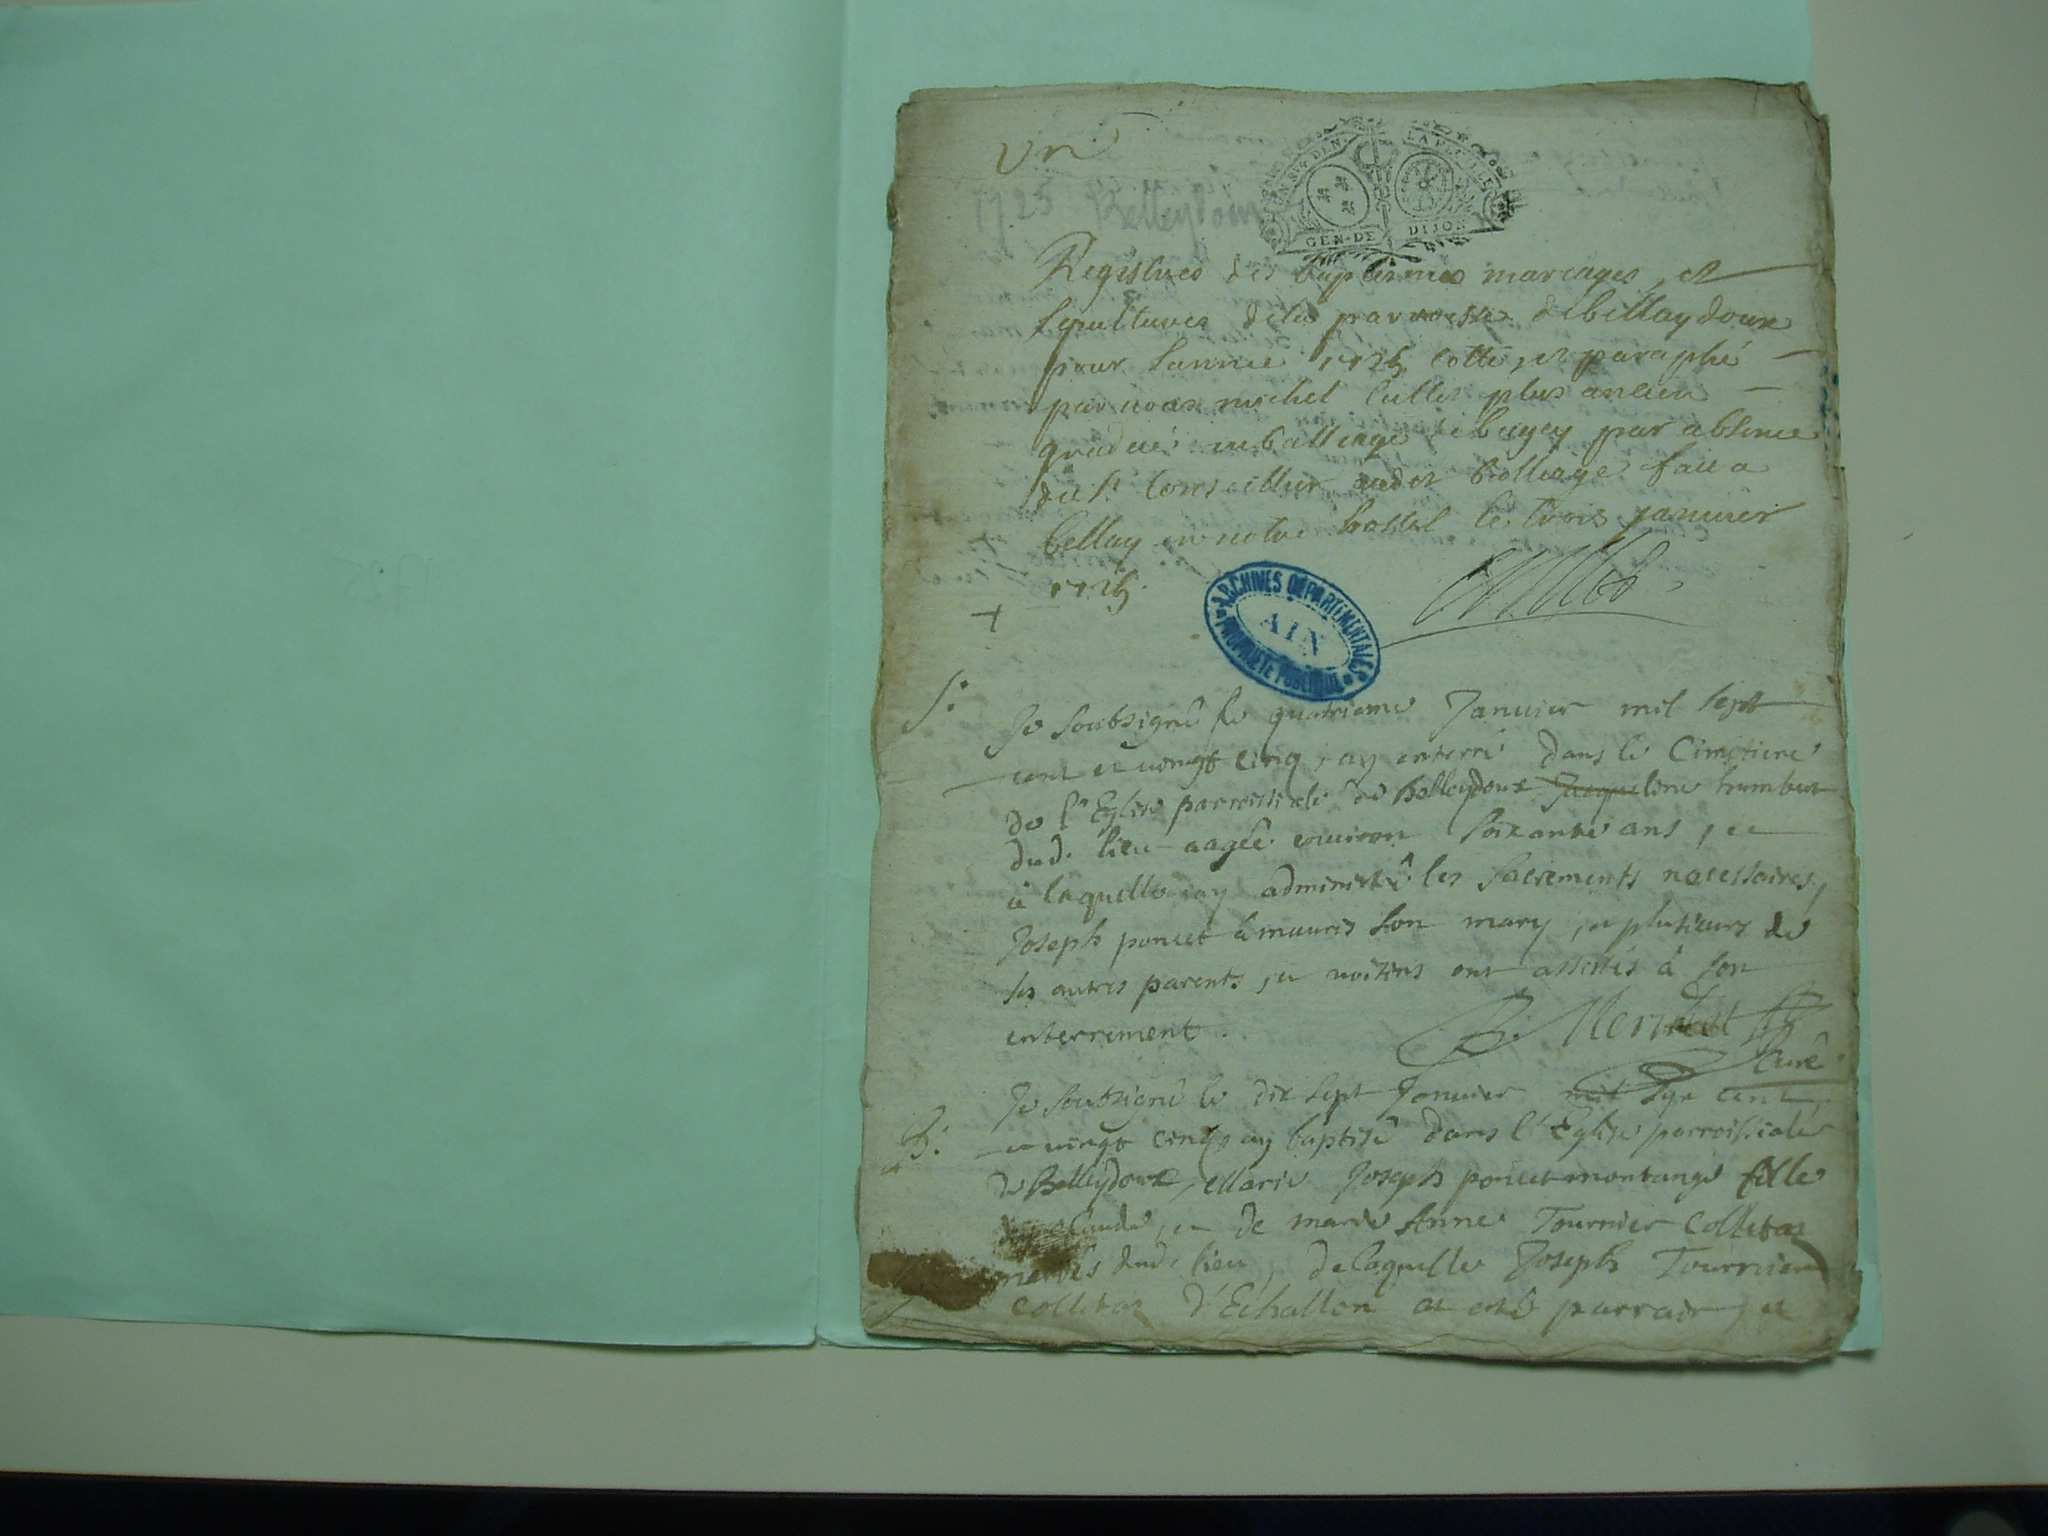 un
1725 Belleydoux
GEN. DE DIJON
Registres des baptesmes mariages, et
sepultures de la parroisse de bellaydoux
pour l'annee 1725 cotté, et paraphé
par nous michel Cullet plus ancien
gradué au balliage de bugey par absence
du Sr Conseiller audit balliage fait a
bellay en notre hostel le trois janvier
1725
ARCHIVES DÉPARTEMENTALES
AIN
PROPRIÉTÉ PUBLIQUE
S:
Je soubsigné le quatrieme Janvier mil sept
cent et vingt cinq, ay enterré dans le Cimetiere
de l'Eglise parroissiale de Belleydoux Jacqueline humbert
dud. lieu aagée environ soixante ans, et
à laquelle j'ay administré les sacrements necessaires,
Joseph poncet son mary, et plusieurs de
ses autres parents, et voisins ont assistés à son
enterrement.
Curé
B:
Je soubsigné le dix sept Janvier mil sept cent
et vingt cinq ay baptisé dans l'Eglise parroissiale
de Belleydoux, Marie Joseph poncet montange fille
de claude, et de marie Anne Tournier Colletaz
mariés dud. lieu, de laquelle Joseph Tournier
Colletaz d'Echallon at esté parrain, et
1725